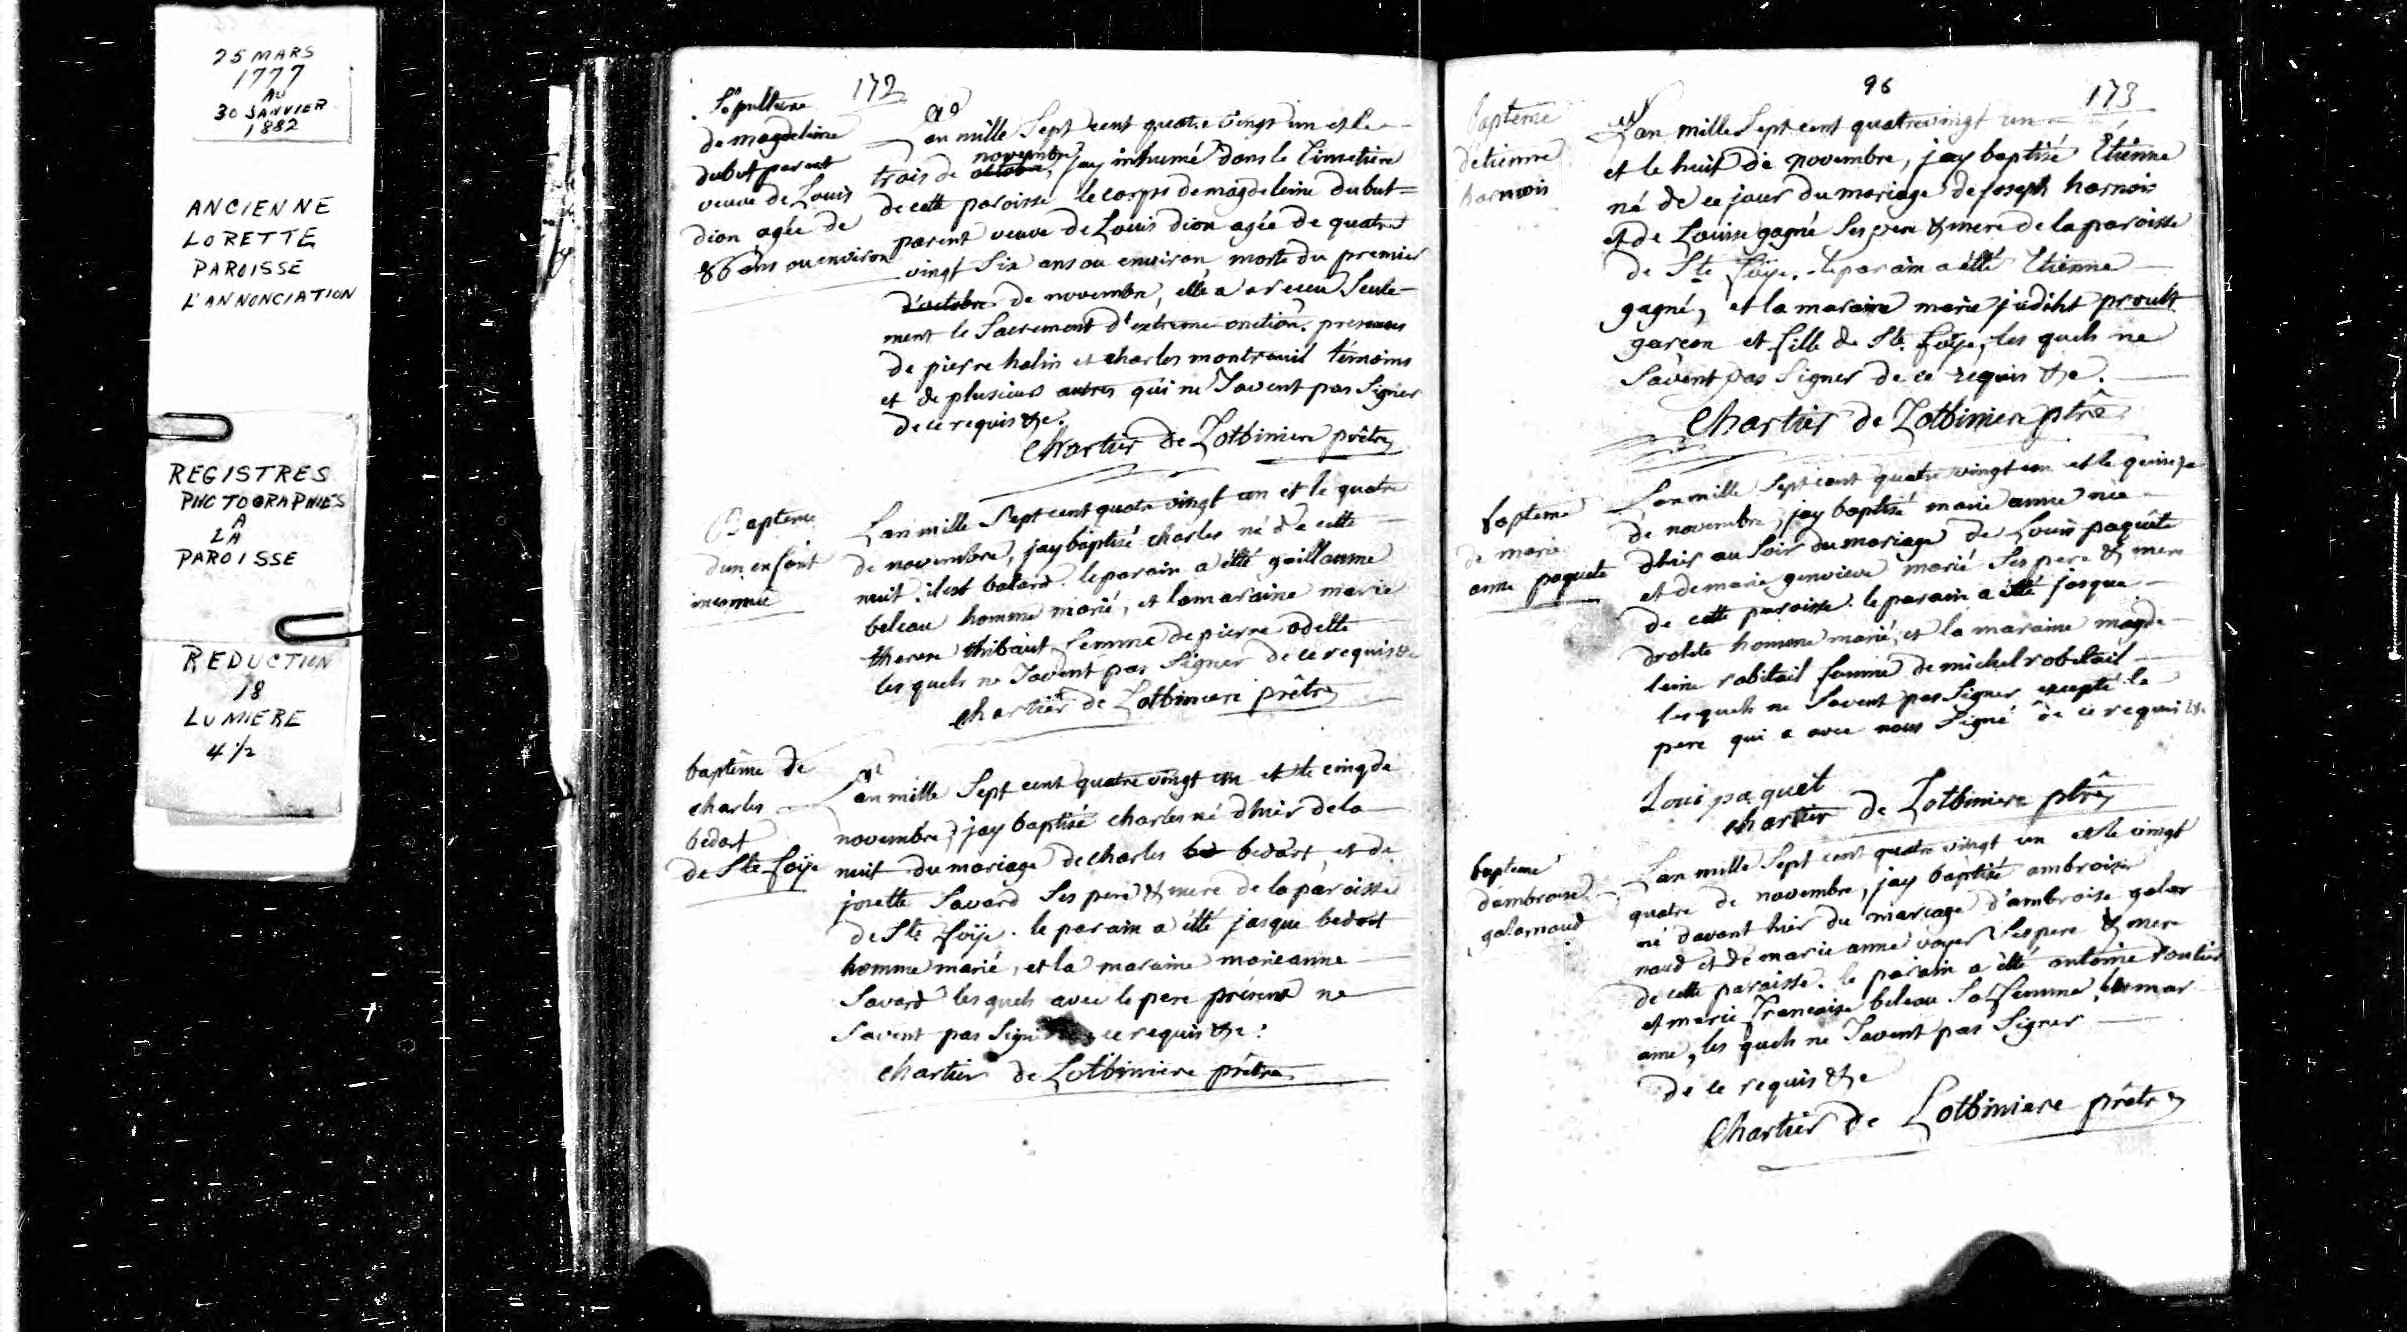 25 MARS
1777
AU
30 JANVIER
1882
ANCIENNE
LORETTE
PAROISSE
L'ANNONCIATION
REGISTRES
PHOTOGRAPHIES
A
LA
PAROISSE
REDUCTION
18
LUMIERE
4 1/2
172
Sepulture
de magdeleine
dubut parent
veuve de Louis
dion agée de
86 ans ou environ
Lan mille Sept cent quatre vingt un et le
trois de octobre novembre, jay inhumé dans le Cimetiere
de cette paroisse le corps de magdeleine dubut=
parent veuve de Louis dion agée de quatre
vingt Six ans ou environ morte du premier
d'octobre de novembre, elle a a receu Seule-
ment le Sacrement d'extreme onction. presences
de pierre halin et charles montreuil témoins
et de plusieurs autres qui ne Savent pas Signer
de ce requis &c.
Chartier de Lotbiniere prêtre
Bapteme
dun enfant
inconnu
Lan mille Sept cent quatre vingt un et le quatre
de novembre, jay baptisé charles né de cette
nuit. il est batard. le parain a été guillaume
beleau homme marié, et la maraine marie
therese thibaut femme de pierre odette
les quels ne Savent pas Signer de ce requis &c
chartier de Lotbiniere prêtre
baptême de
charles
bedart
de Ste foÿe
Lan mille Sept cent quatre vingt un et le cinq de
novembre, jay baptisé charles né dhier de la
nuit du mariage de charles be bedart, et de
josette Savard Ses pere & mere de la paroisse
de Ste foÿe. le parain a été jasque bedart
homme marié, et la maraine marie anne
Savard les quels avec le pere présent ne
Savent pas Signer ce requis &c.
chartier de Lotbiniere prêtre
96
173
bapteme
détienne
harnois
Lan mille Sept cent quatre vingt un
et le huit de novembre, jay baptisé Étienne
né de ce jour du mariage de joseph harnois
et de Louise gagné Ses pere & mere de la paroisse
de Ste foÿe. le parain a été Etienne
gagné, et la maraine marie judiht proult
garcon et fille de Ste. foÿe, les quels ne
Savent pas Signer de ce requis &c.
Chartier de Lotbiniere ptrê
bapteme
de marie
anne paquete
Lan mille Sept cent quatre vingt un et le quinze
de novembre, jay baptisé marie anne née
dhier au Soir du mariage de Louis paquete
et de marie genvieve marié Ses pere & mere
de cette paroisse. le parain a été jasque
drolete homme marié, et la maraine magde-
leine robitail femme de michel robitail
les quels ne Savent pas Signer excepté le
pere qui a avec nous Signé de ce requis &c.
Loui paquet
chartier de Lotbiniere ptrê
bapteme
dambroise
galarnaud
Lan mille Sept cent quatre vingt un et le vingt
quatre de novembre, jay baptisé ambroise
né davant hier du mariage d'ambroise galar
naud et de marie anne voyer Ses pere & mere
de cette paroisse. le parain a été antoine routier
et marie francoise beleau Sa femme la mar
aine, les quels ne Savent pas Signer
de ce requis &c
Chartier de Lotbiniere prêtre